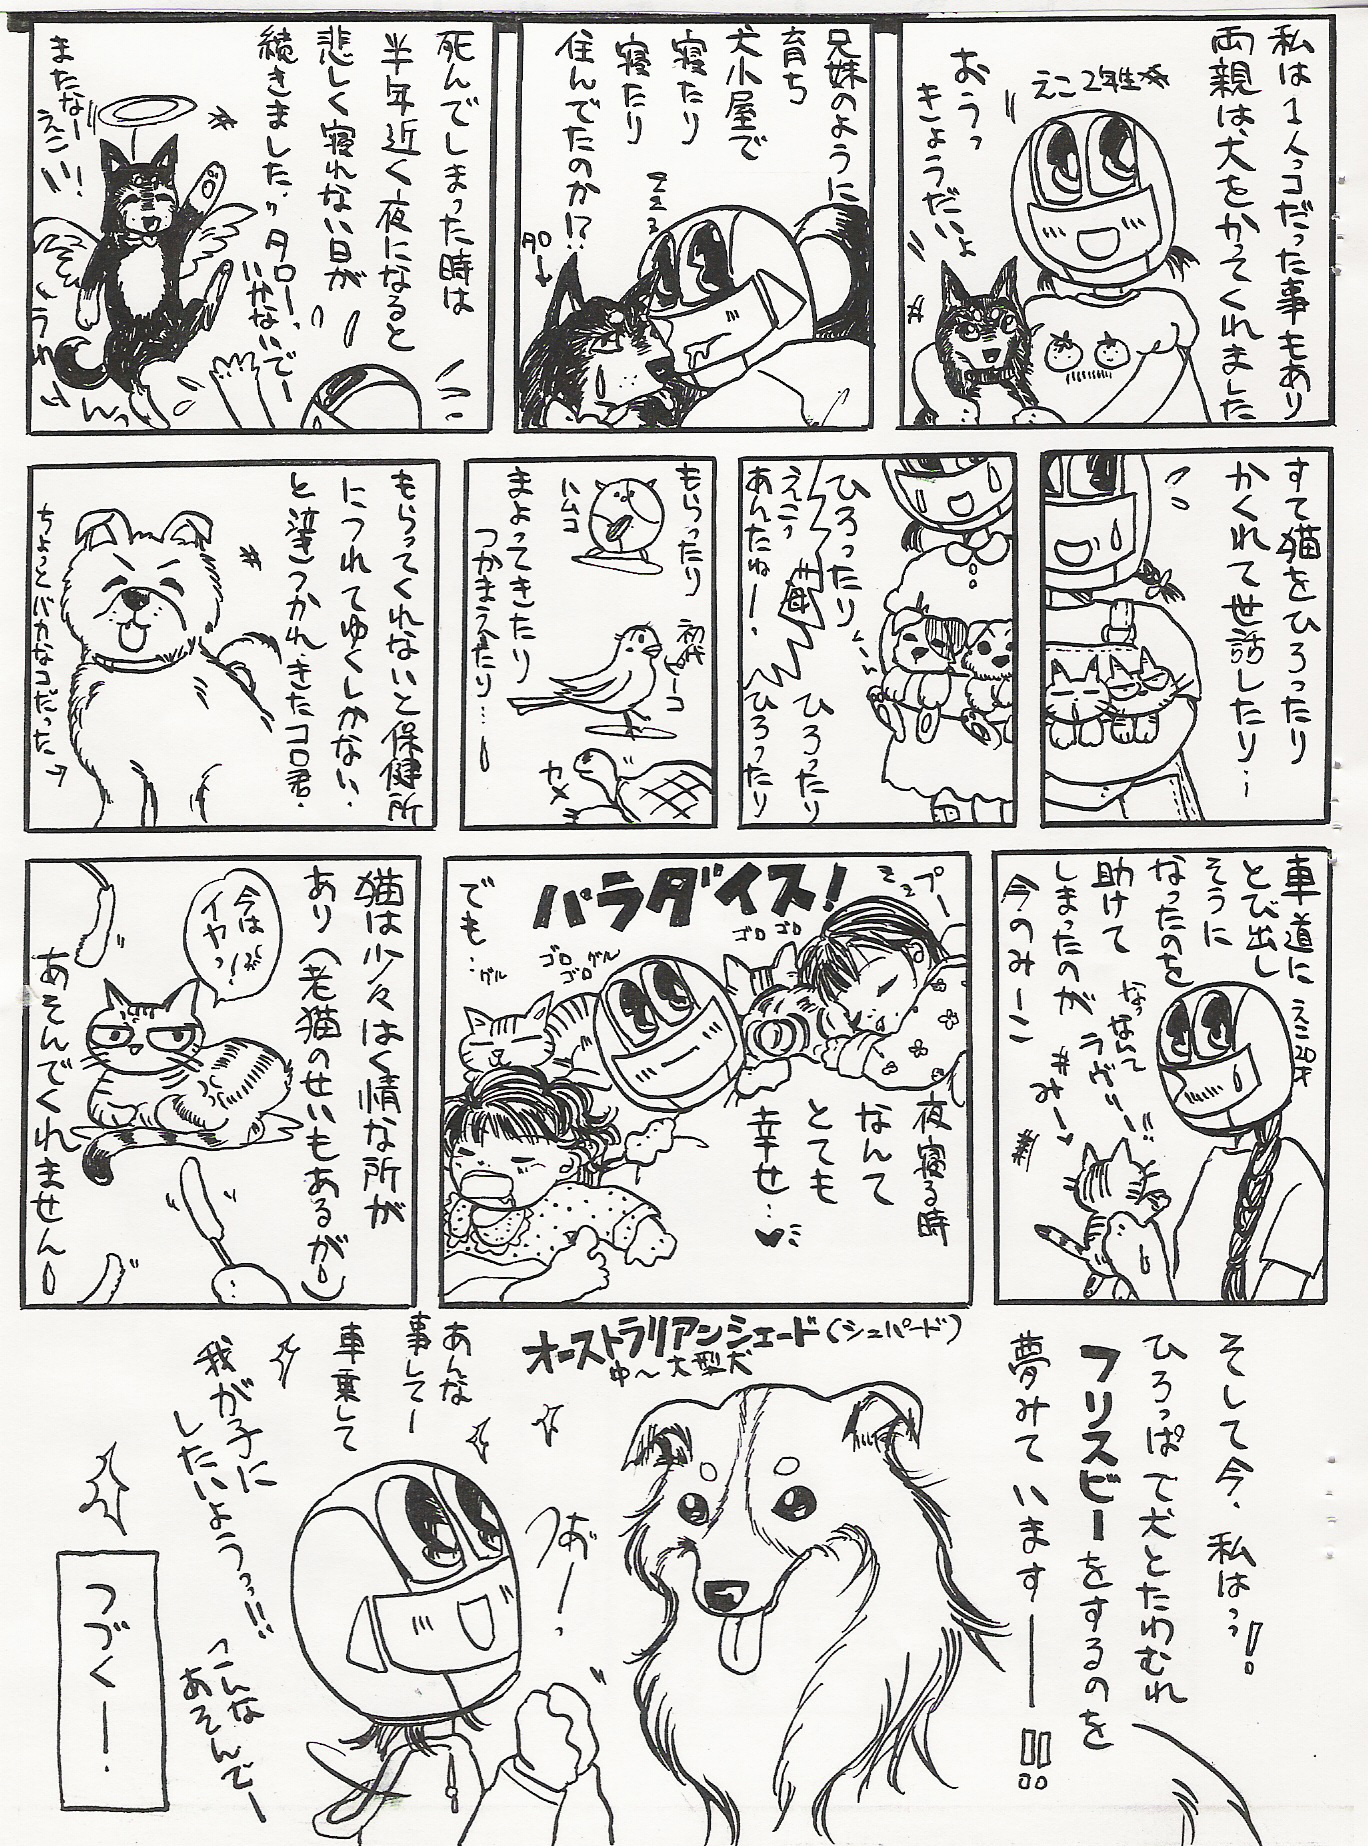 私は1人っコだった事もあり
両親は、犬をかってくれました
えこ2年生
おうっ
きょうだいよ
兄妹のように
育ち
犬小屋で
寝たり
寝たり
住んでたのか!?
タロ
死んでしまった時は
半年近く夜になると
悲しく寝れない日が
続きました。
タローっ
いかないでー
またなー
えこい!
うわーんっ
すて猫をひろったり
かくれて世話したり…
ひろったり
えこっ
あんたねー。
母
ひろったり
ひろったり
もらったり
ハムコ
まよってきたり
つかまえたり…
初代
ピーコ
カメ
もらってくれないと保健所
につれてゆくしかない。
と泣きつかれ、きたコロ君。
ちょっとバカなコだった
車道に
とび出し
そうに
なったのを
助けて
しまったのが
今のみーこ
えこ20才
なっなんて
ラヴリー!!
みー♥
パラダイス!
でも…
グル
ゴロ
ゴロ
グル
ゴロ
ゴロ
プー
夜寝る時
なんて
とても
幸せ…♥
猫は少々はく情な所が
あり(老猫のせいもあるが)
あそんでくれません
今は
イヤっ!
そして今、私はっ!
ひろっぱで犬とたわむれ
フリスビーをするのを
夢みています――!!
オーストラリアンシェード(シェパード)
中〜大型犬
あんな
事してー
車乗して
おーっ
我が子に
したいようっっ!!
こんな
あそんでー
つづくー。